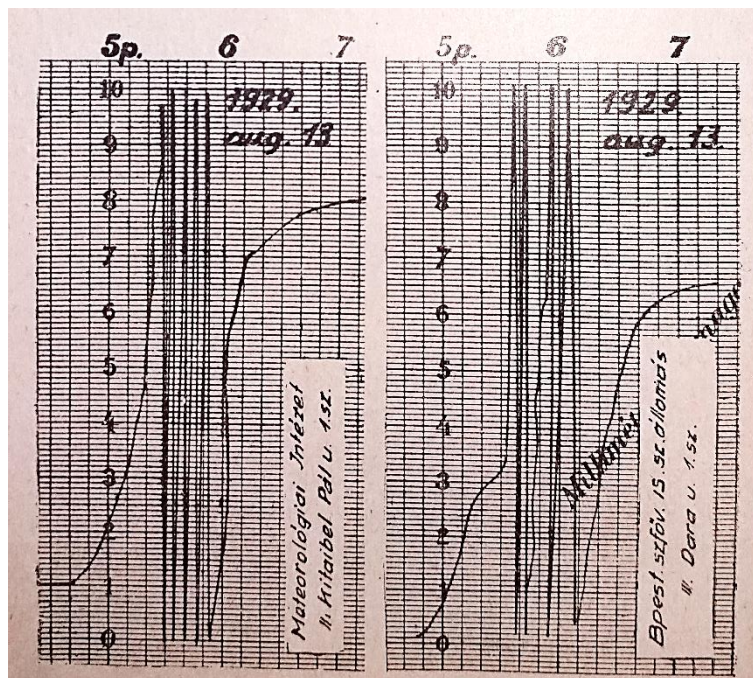 5p. 6 7
10
9
8
7
6
5
4
3
2
1
0
1929.
aug. 13.
Meteorológiai Intézet
II. Kitaibel Pál u. 1.sz.
5p. 6 7
10
9
8
7
6
5
4
3
2
1
0
1929.
aug. 13.
Millimei
Bpest. szföv. 15. sz. állomás
III. Dara u. 1.sz.